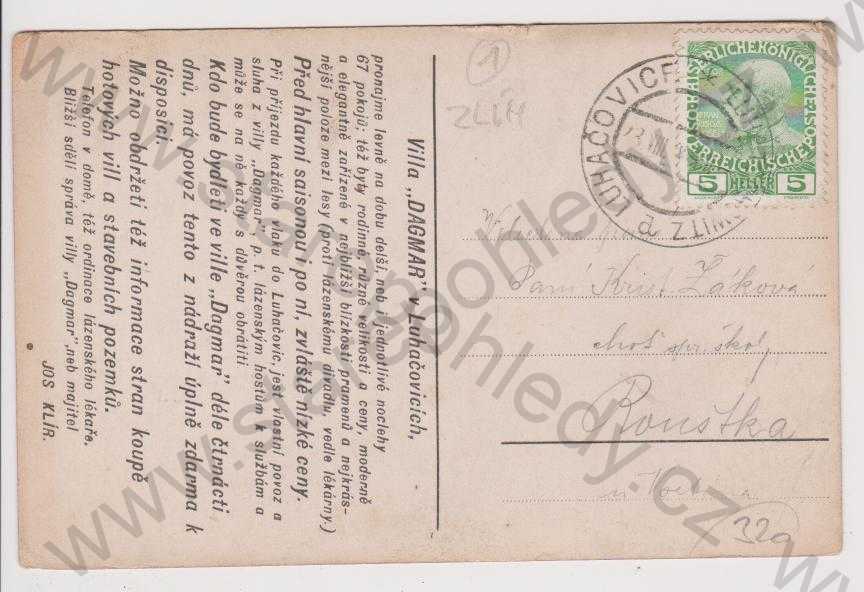 Villa „DAGMAR” v Luhačovicích,
pronajme levně na dobu delší, neb i jednotlivé noclehy
67 pokojů; též byty rodinné, různé velikosti a ceny, moderně
a elegantně zařízené v nejbližší blízkosti pramenů a nejkrás-
nější poloze mezi lesy (proti lázenskému divadlu, vedle lékárny.)
Před hlavní saisonou i po ní, zvláště nízké ceny.
Při příjezdu každého vlaku do Luhačovic, jest vlastní povoz a
sluha z villy „Dagmar”, p. t. lázenským hostům k službám a
může se na ně každý s důvěrou obrátiti
Kdo bude bydleti ve ville „Dagmar” déle čtrnácti
dnů, má povoz tento z nádraží úplně zdarma k
disposici.
Možno obdržeti též informace stran koupě
hotových vill a stavebních pozemků.
Telefon v domě, též ordinace lázenského lékaře.
Bližší sdělí správa villy „Dagmar”, neb majitel
JOS KLÍR.
1
ZLÍN
LUHAČOVICE
5 HELLER 5
Paní Krist. Žákova
choť spr. škol,
Rouštka
32a
www.stare-pohledy.cz